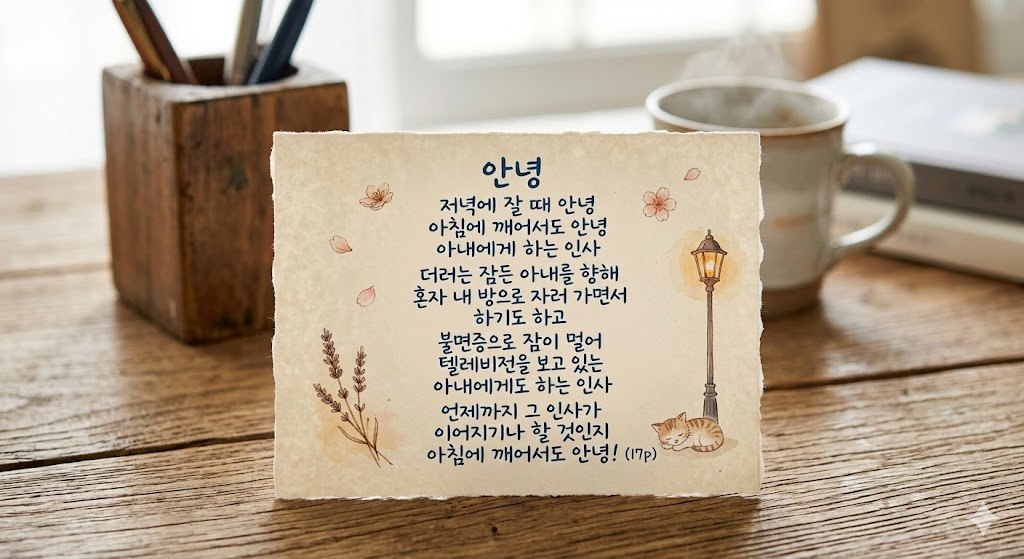 안녕
저녁에 잘 때 안녕
아침에 깨어서도 안녕
아내에게 하는 인사
더러는 잠든 아내를 향해
혼자 내 방으로 자러 가면서
하기도 하고
불면증으로 잠이 멀어
텔레비전을 보고 있는
아내에게도 하는 인사
언제까지 그 인사가
이어지기나 할 것인지
아침에 깨어서도 안녕! (17p)